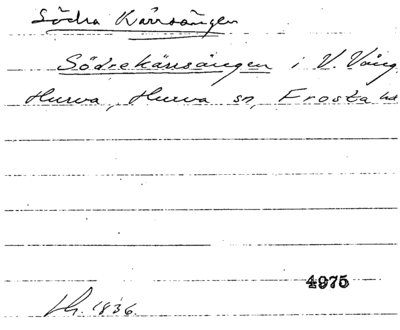 Södra Kärrsängen
Södrekärrsängen i V. Vång
Hurva, Hurva sn, Frosta hd
4975
1836.